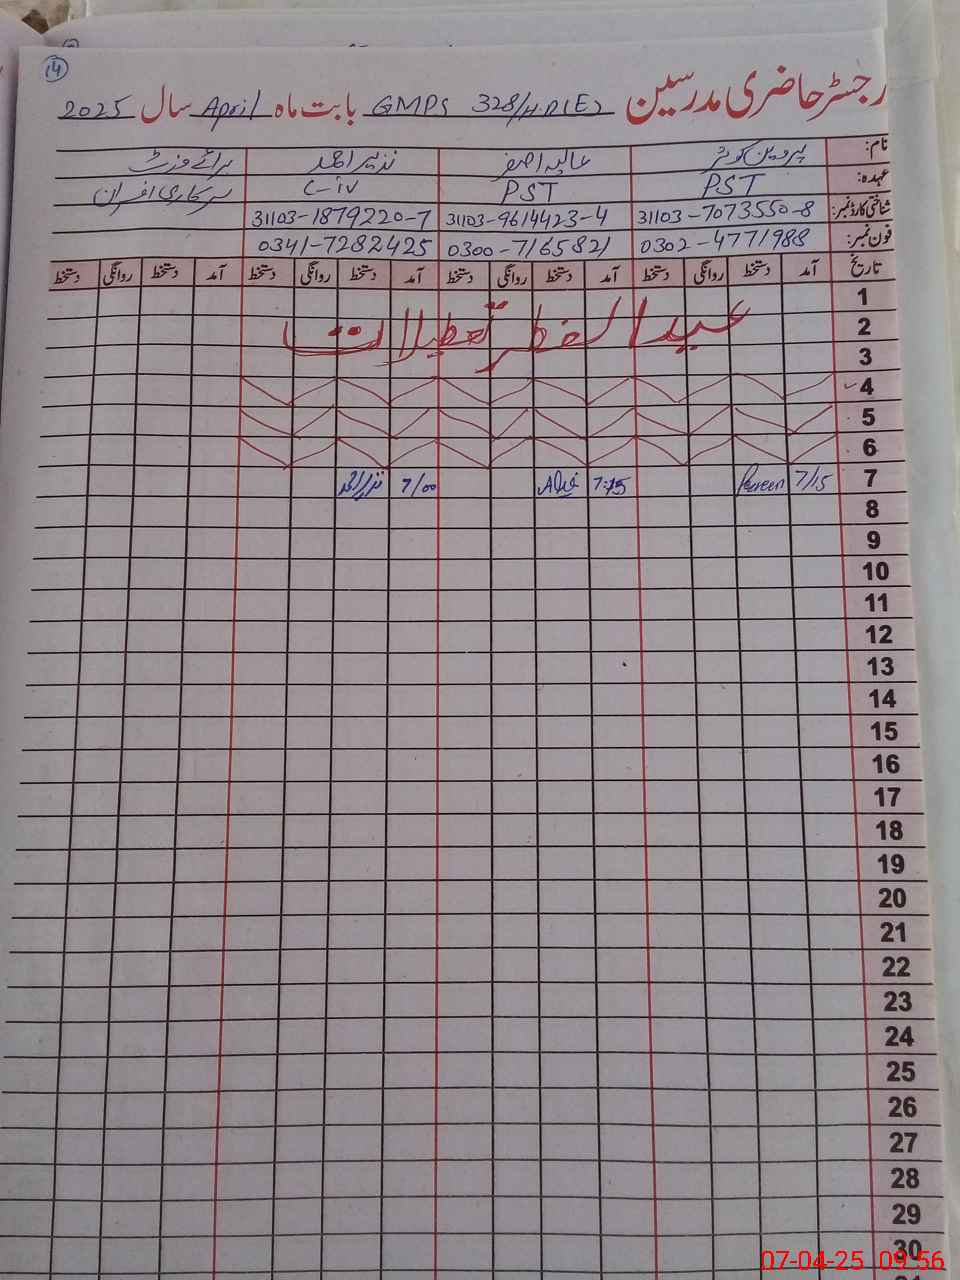 14
رجسٹر حاضری مدرسین GMPS 328/H.R(E) بابت ماہ April سال 2025
نام: پروین کوثر عالیہ اصغر نزیر احمد برائے وزٹ
عہدہ: PST PST C-iv سرکاری افسران
شناختی کارڈ نمبر: 31103-7073550-8 31103-9614423-4 31103-1879220-7
فون نمبر: 0302-4771988 0300-7165821 0341-7282425
تاریخ آمد دستخط روانگی دستخط آمد دستخط روانگی دستخط آمد دستخط روانگی دستخط آمد دستخط روانگی دستخط
1
2 عید الفطر تعطیلات
3
4
5
6
7 7/15 Parveen 7:15 7/00 نزیر احمد
8
9
10
11
12
13
14
15
16
17
18
19
20
21
22
23
24
25
26
27
28
29
30
07-04-25 09:56